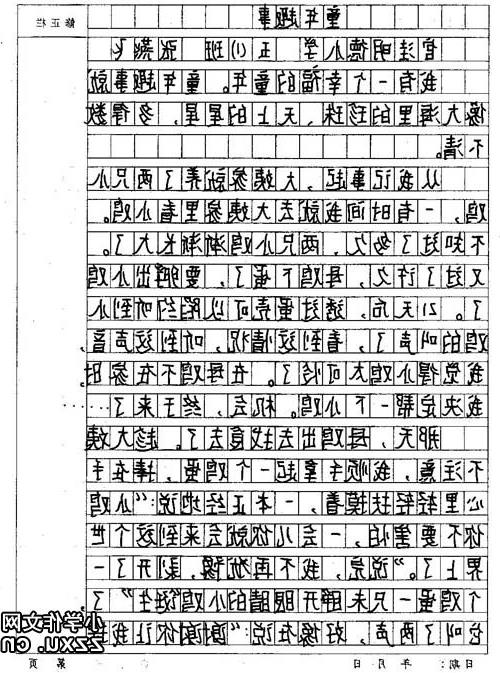 修正栏
童年趣事
官洼明德小学 五(1)班 张燕飞
我有一个幸福的童年。童年趣事就
像大海里的珍珠,天上的星星,多得数
不清。
从我记事起,大姨家就养了两只小
鸡,一有时间我就去大姨家里看小鸡。
不知过了多久,两只小鸡渐渐长大了。
又过了许久,母鸡下蛋了,要孵出小鸡
了。21天后,透过蛋壳可以隐约听到小
鸡的叫声了,看到这情况,听到这声音,
我觉得小鸡太可怜了。在母鸡不在家时,
我决定帮一下小鸡。机会,终于来了……
那天,母鸡出去找食去了。趁大姨
不注意,我顺手拿起一个鸡蛋,捧在手
心里轻轻抚摸着,一本正经地说:“小鸡
你不要害怕,一会儿你就会来到这个世
界上了。”说完,我不再犹豫,剥开了一
个鸡蛋一只未睁开眼睛的小鸡诞生”了
它叫了两声,好像在说:“谢谢你让我提
日期: 年 月 日 第 页
小学作文网
ZZXU.CN